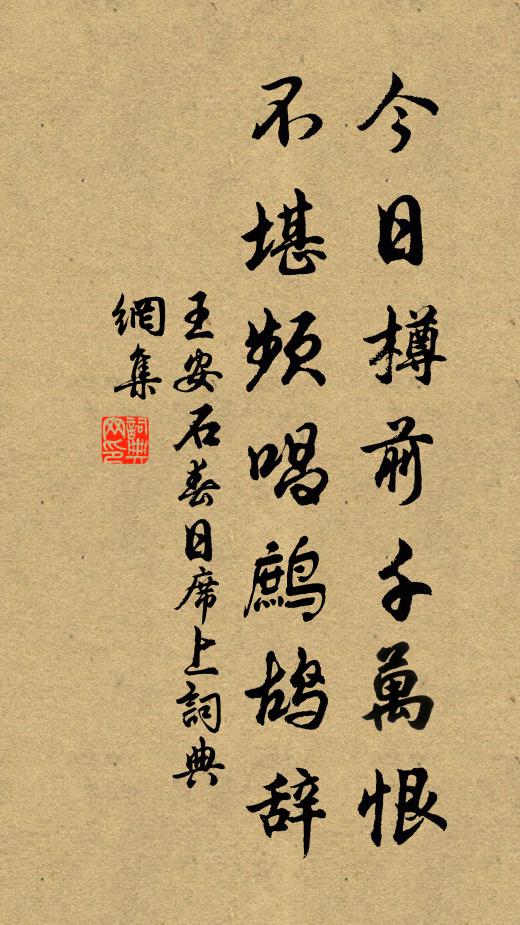 今日樽前千萬恨
不堪頻唱鷓鴣辞
王安石春日席上詞典
網集
詞典
网印